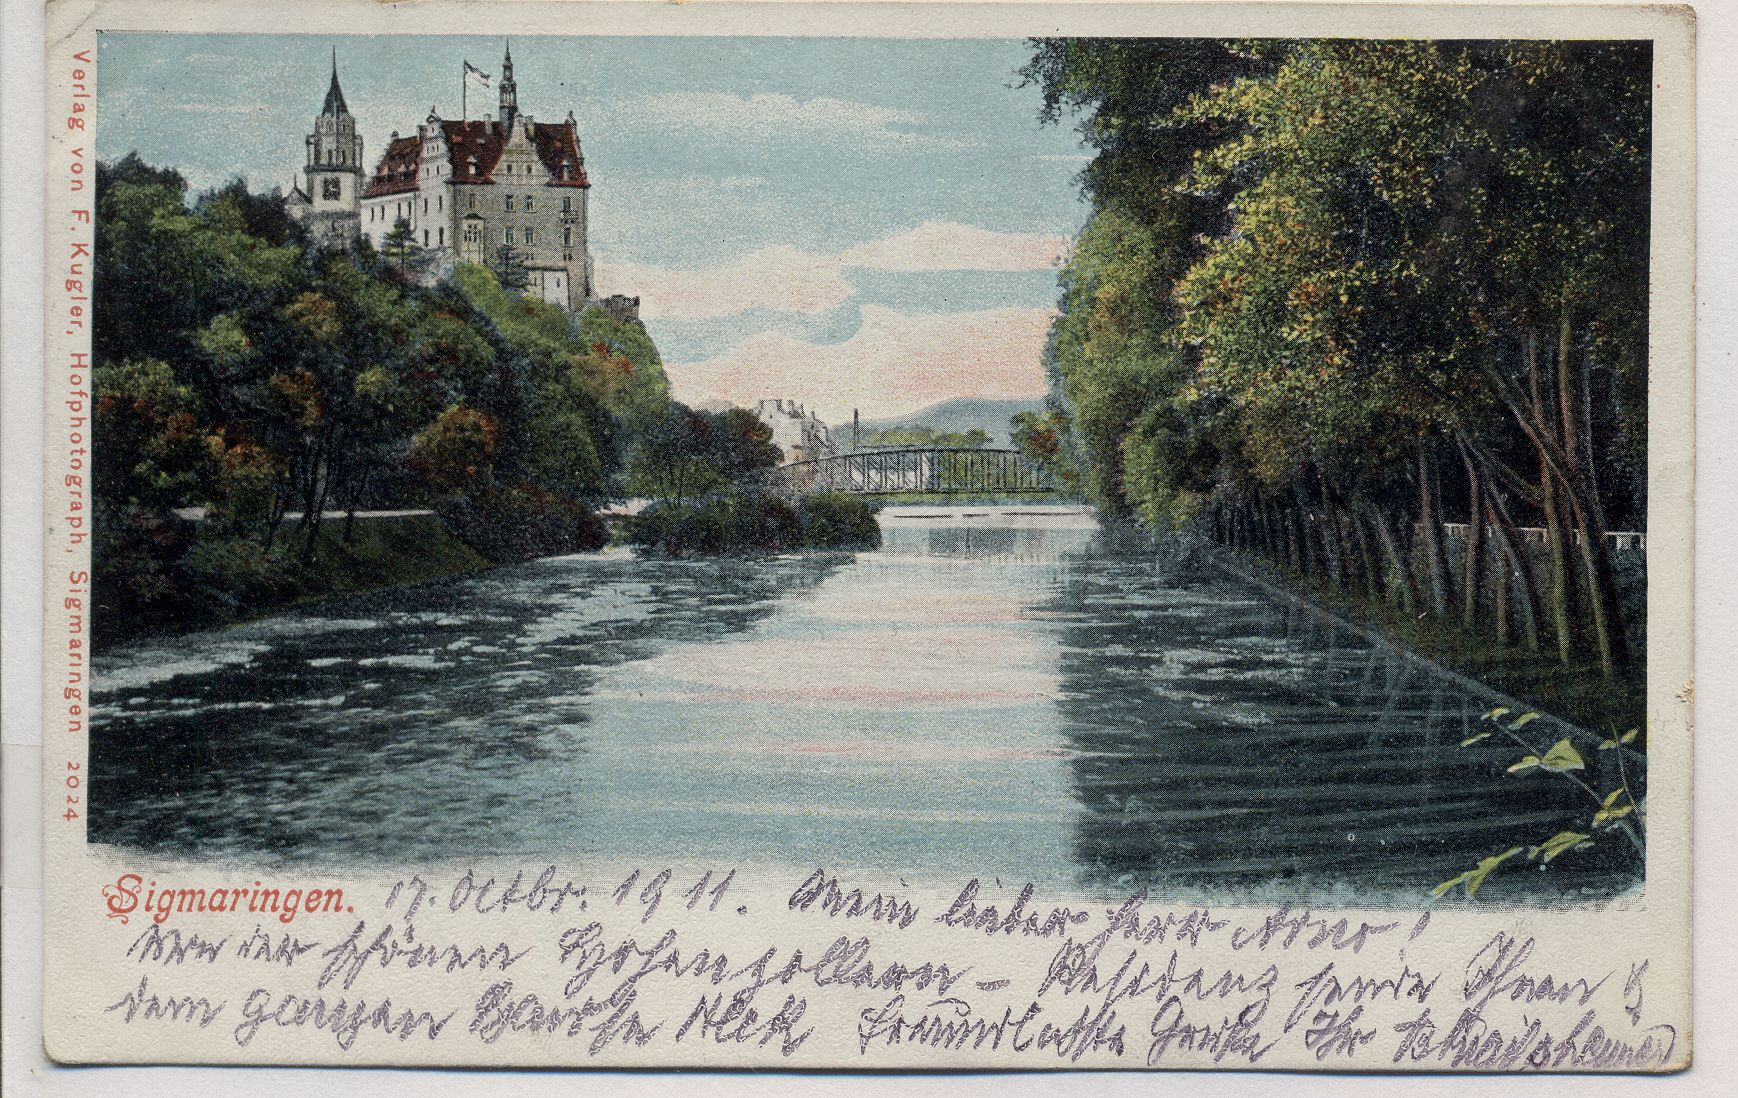 Verlag von F. Kugler, Hofphotograph, Sigmaringen 2024
Sigmaringen. 17. Octbr. 1911. Mein lieber Herr
der schönen Hohenzollern - Residenz sende Ihnen &
dem ganzen Hause freundlichste Grüße Ihr